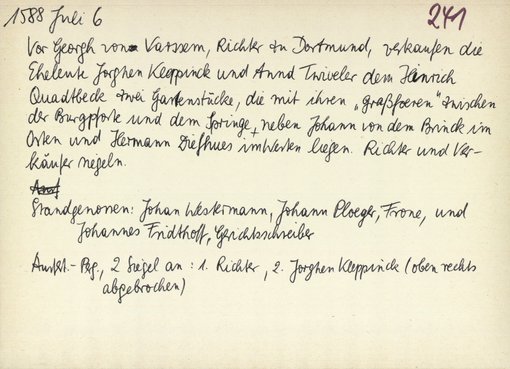 1588 Juli 6
241
Vor Georgh von Varssem, Richter zu Dortmund, verkaufen die
Eheleute Jorghen Kleppinck und Anna Twiveler dem Hinrich
Quadtbeck zwei Gartenstücke, die mit ihren „graßfoeren" zwischen
der Burgpforte und dem Springe, neben Johann von dem Brinck im
Osten und Hermann Diefhues im Westen liegen. Richter und Ver-
käufer siegeln.
Standgenossen: Johan Westermann, Johann Ploeger, Frone, und
Johannes Fridthoff, Gerichtsschreiber
Ausf.-Pg., 2 Siegel an: 1. Richter, 2. Jorghen Kleppinck (oben rechts
abgebrochen)